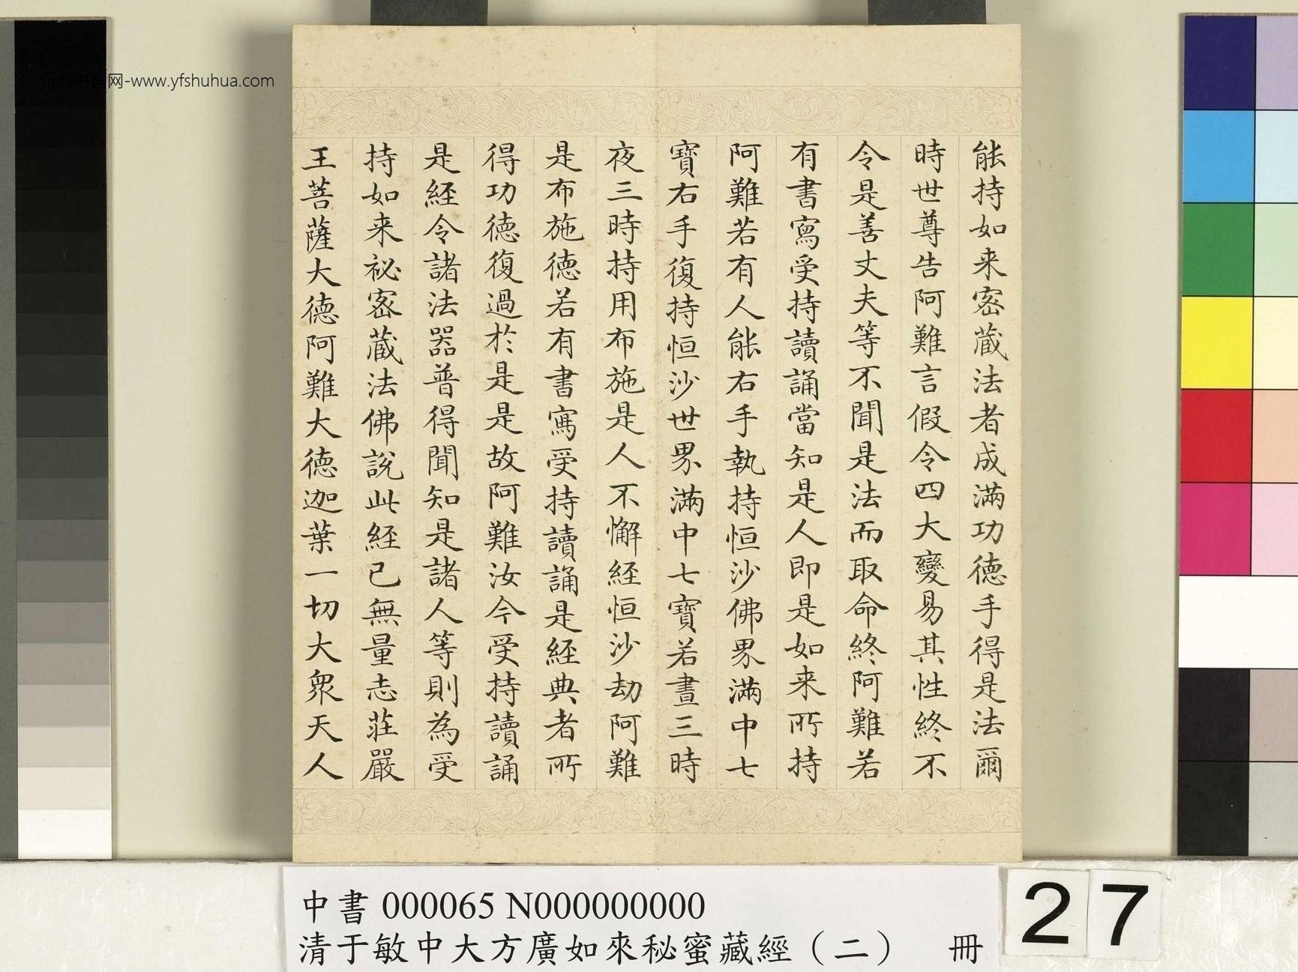 网-www.yfshuhua.com
能持如来密蔵法者成滿功德手得是法爾
時世尊告阿難言假令四大變易其性終不
令是善丈夫等不聞是法而取命終阿難若
有書寫受持讀誦當知是人即是如来所持
阿難若有人能右手執持恒沙佛界滿中七
寶右手復持恒沙世界滿中七寶若晝三時
夜三時持用布施是人不懈經恒沙劫阿難
是布施德若有書寫受持讀誦是經典者所
得功德復過於是是故阿難汝今受持讀誦
是經令諸法器普得聞知是諸人等則為受
持如来祕密蔵法佛說此經已無量志莊嚴
王菩薩大德阿難大德迦葉一切大眾天人
中書 000065 N000000000
清于敏中大方廣如來秘蜜藏經（二） 冊
27